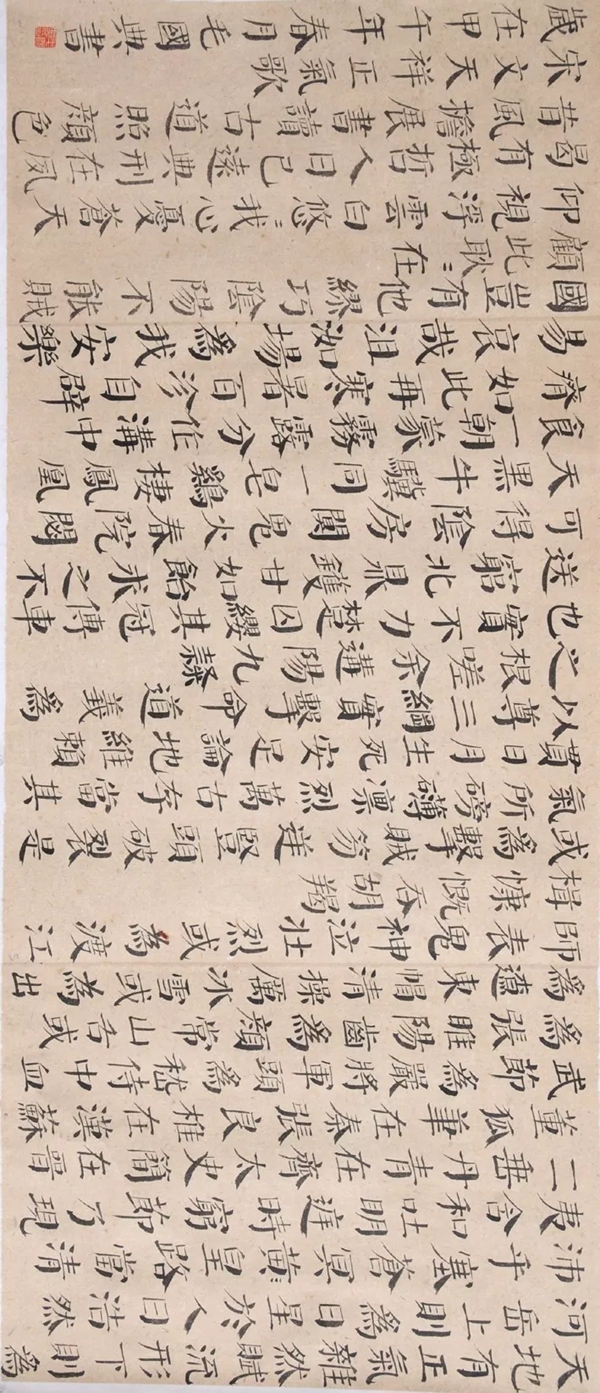 天地有正氣雜然賦流形下則為
河岳上則為日星於人曰浩然
沛乎塞蒼冥皇路當清
夷含和吐明庭時窮節乃現
一一垂丹青在齊太史簡在晉
董狐筆在秦張良椎在漢蘇
武節為嚴將軍頭為嵇侍中血
為張睢陽齒為顏常山舌或
為遼東帽清操厲冰雪或為出
師表鬼神泣壯烈或為渡江
楫慷慨吞胡羯
或為擊賊笏逆豎頭破裂是
氣所磅礴凜烈萬古存當其
貫日月生死安足論地維賴
以尊三綱實擊命道義為
之根嗟余遘陽九隸
也實不力楚囚纓其冠傳車
送窮北鼎鑊甘如飴求之不
可得陰房闃鬼火春院閟
天黑牛驥同一皂鷄棲鳳凰
食一朝蒙霧露分作溝中
瘠如此再寒暑百沴自辟
易哀哉沮洳場為我安樂
國豈有他繆巧陰陽不能賊
顧此耿耿在
仰視浮雲白悠悠我心憂蒼天
曷有極哲人日已遠典刑在夙
昔風檐展書讀古道照顏色
宋文天祥正氣歌
歲在甲午年春月毛國典書